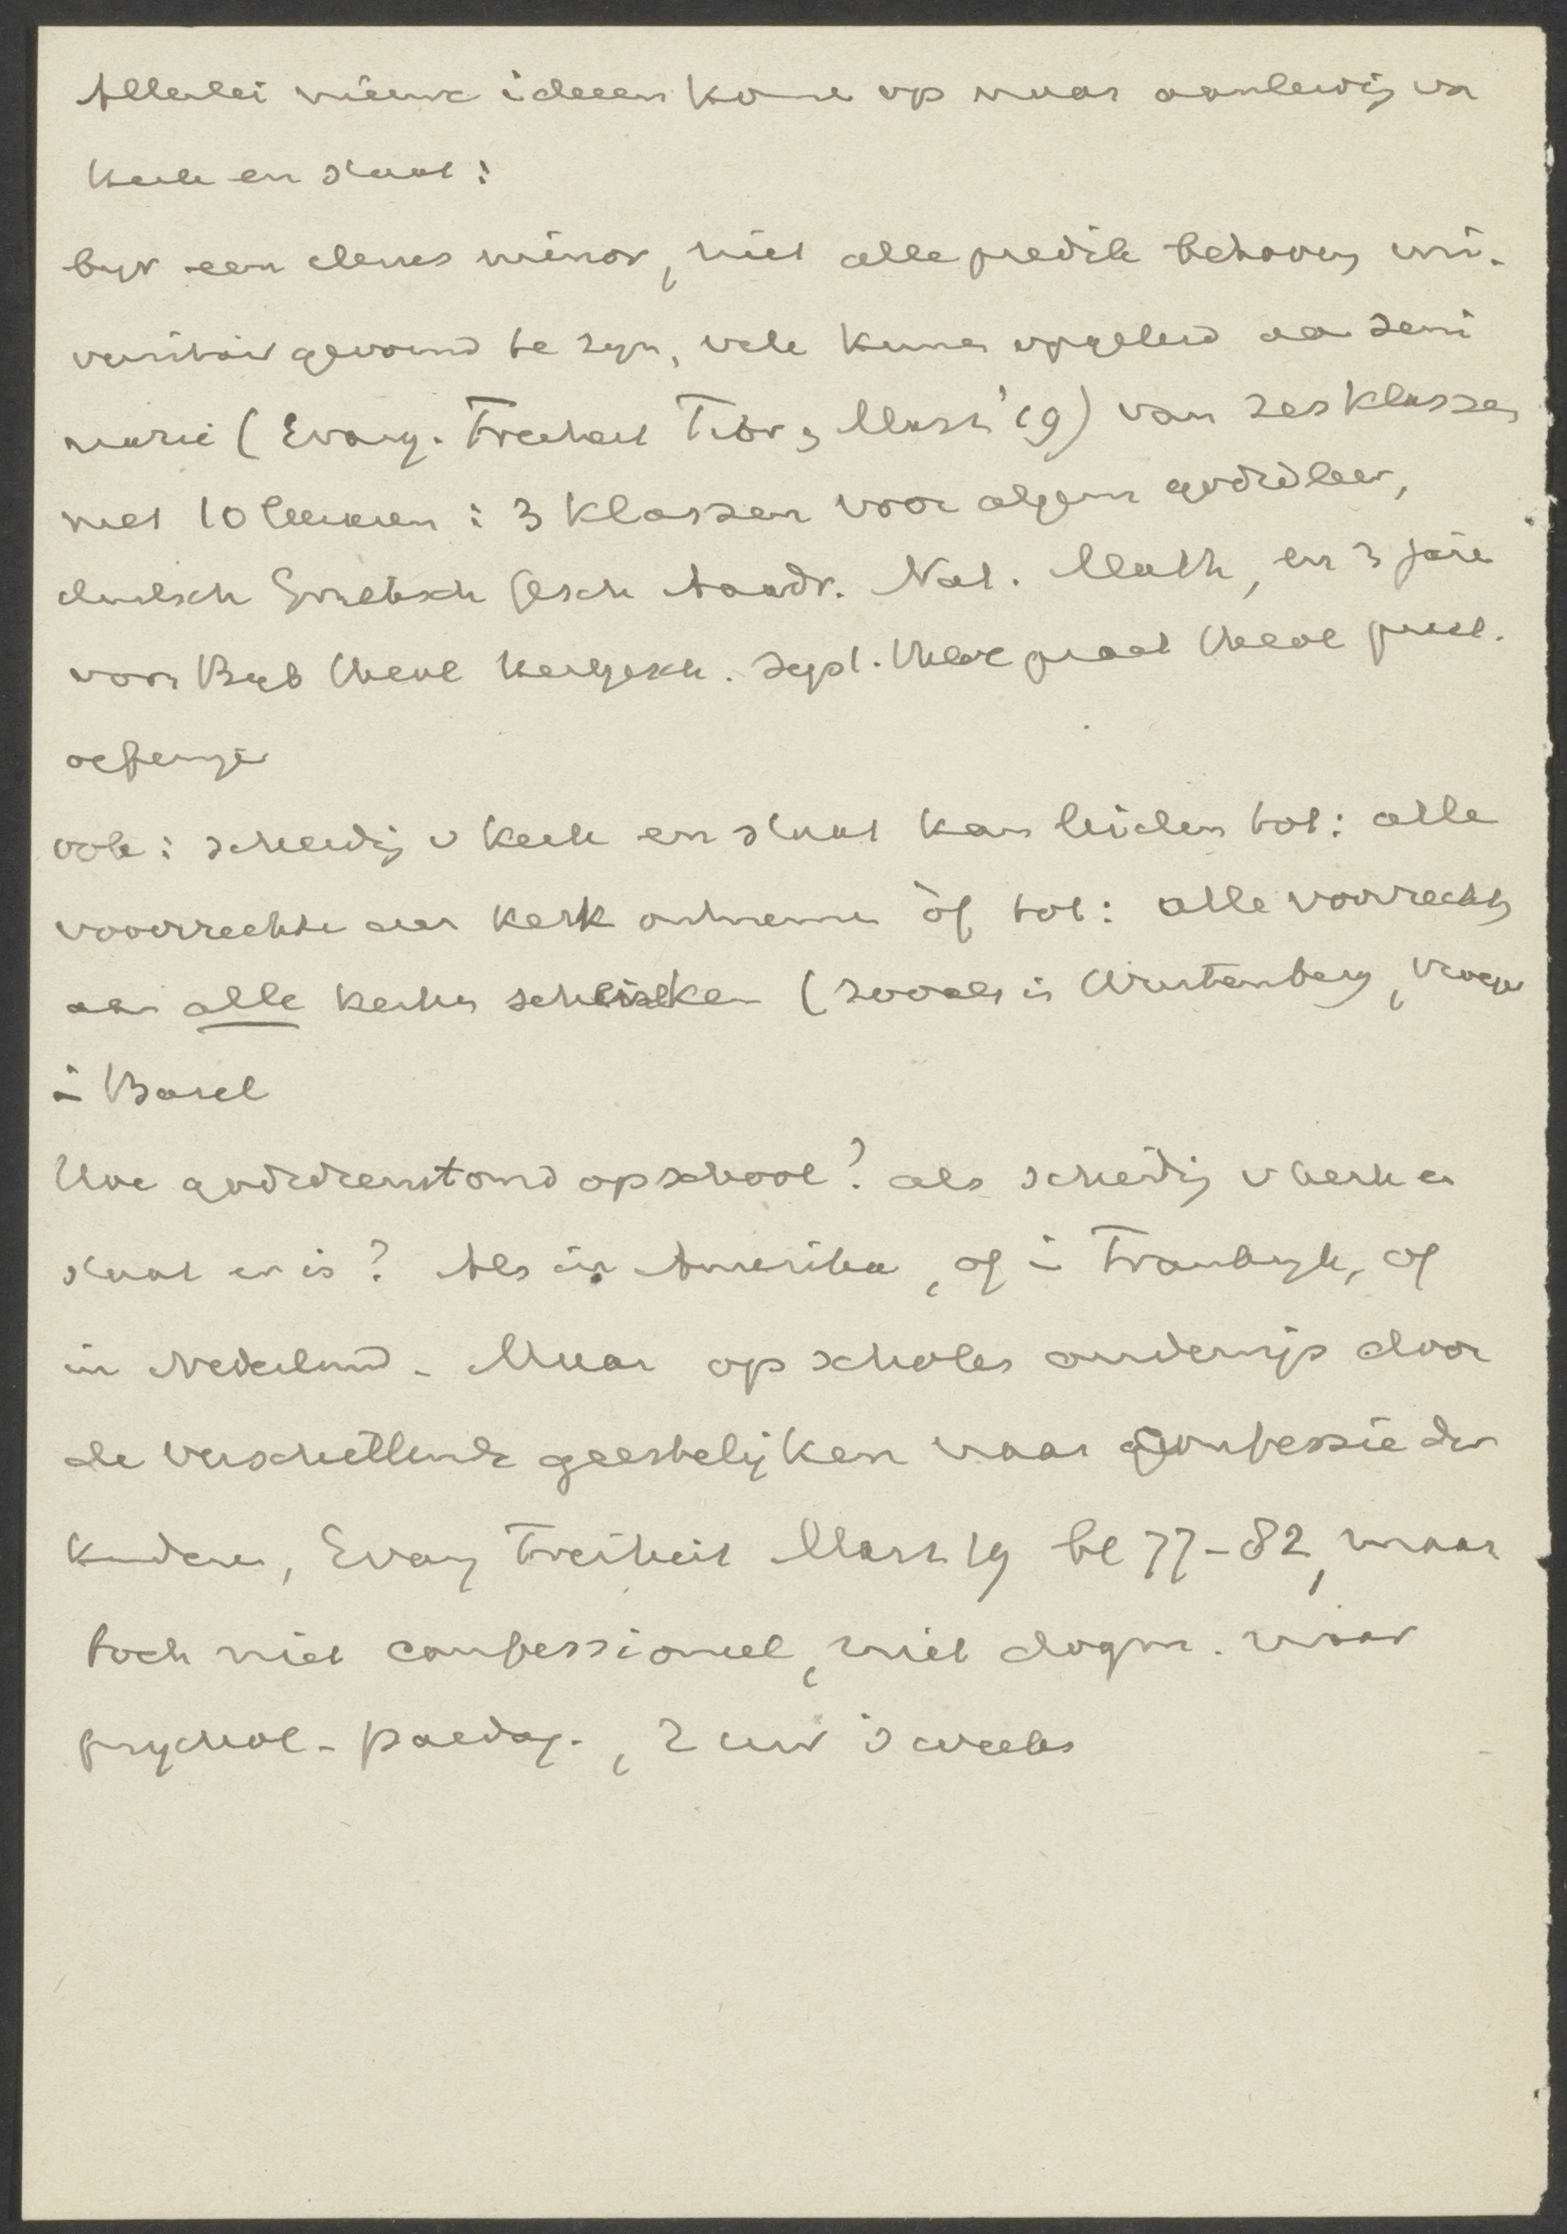 Allerlei nieuwe ideeen kome op naar aanleidig va
kerk en staat:
byv een clerus minor, niet alle predik behoeven uni-
versitair gevormd te zyn, vele kunnen opgeleid aa semi
narie (Evang. Freiheit Febr, März '19) van zes klassen
met 10 leeraren: 3 klassen voor algem godsdleer,
duitsch Grieksch Gesch Aardr. Nat. Math, en 3 jare
voor Byb theol kerkgesch. syst. theol praat theol pract.
oefenige
ook: scheidig v kerk en staat kan leiden tot: alle
voorrechte aan kerk ontneme òf tot: alle voorrechte
aan alle kerke schenken (zooals i Wurtemberg, vroege
i Basel
Hoe godsdienstond op school? als scheidig v kerk e
staat er is? Als in Amerika, of i Frankryk, of
in Nederland. Maar op scholen onderwijs door
de verschillende geestelijken naar confessie der
kinderen, Evang Freiheit März 19 bl 77-82, maar
toch niet confessioneel, niet dogm. maar
psychol-paedag., 2 uur 's weeks